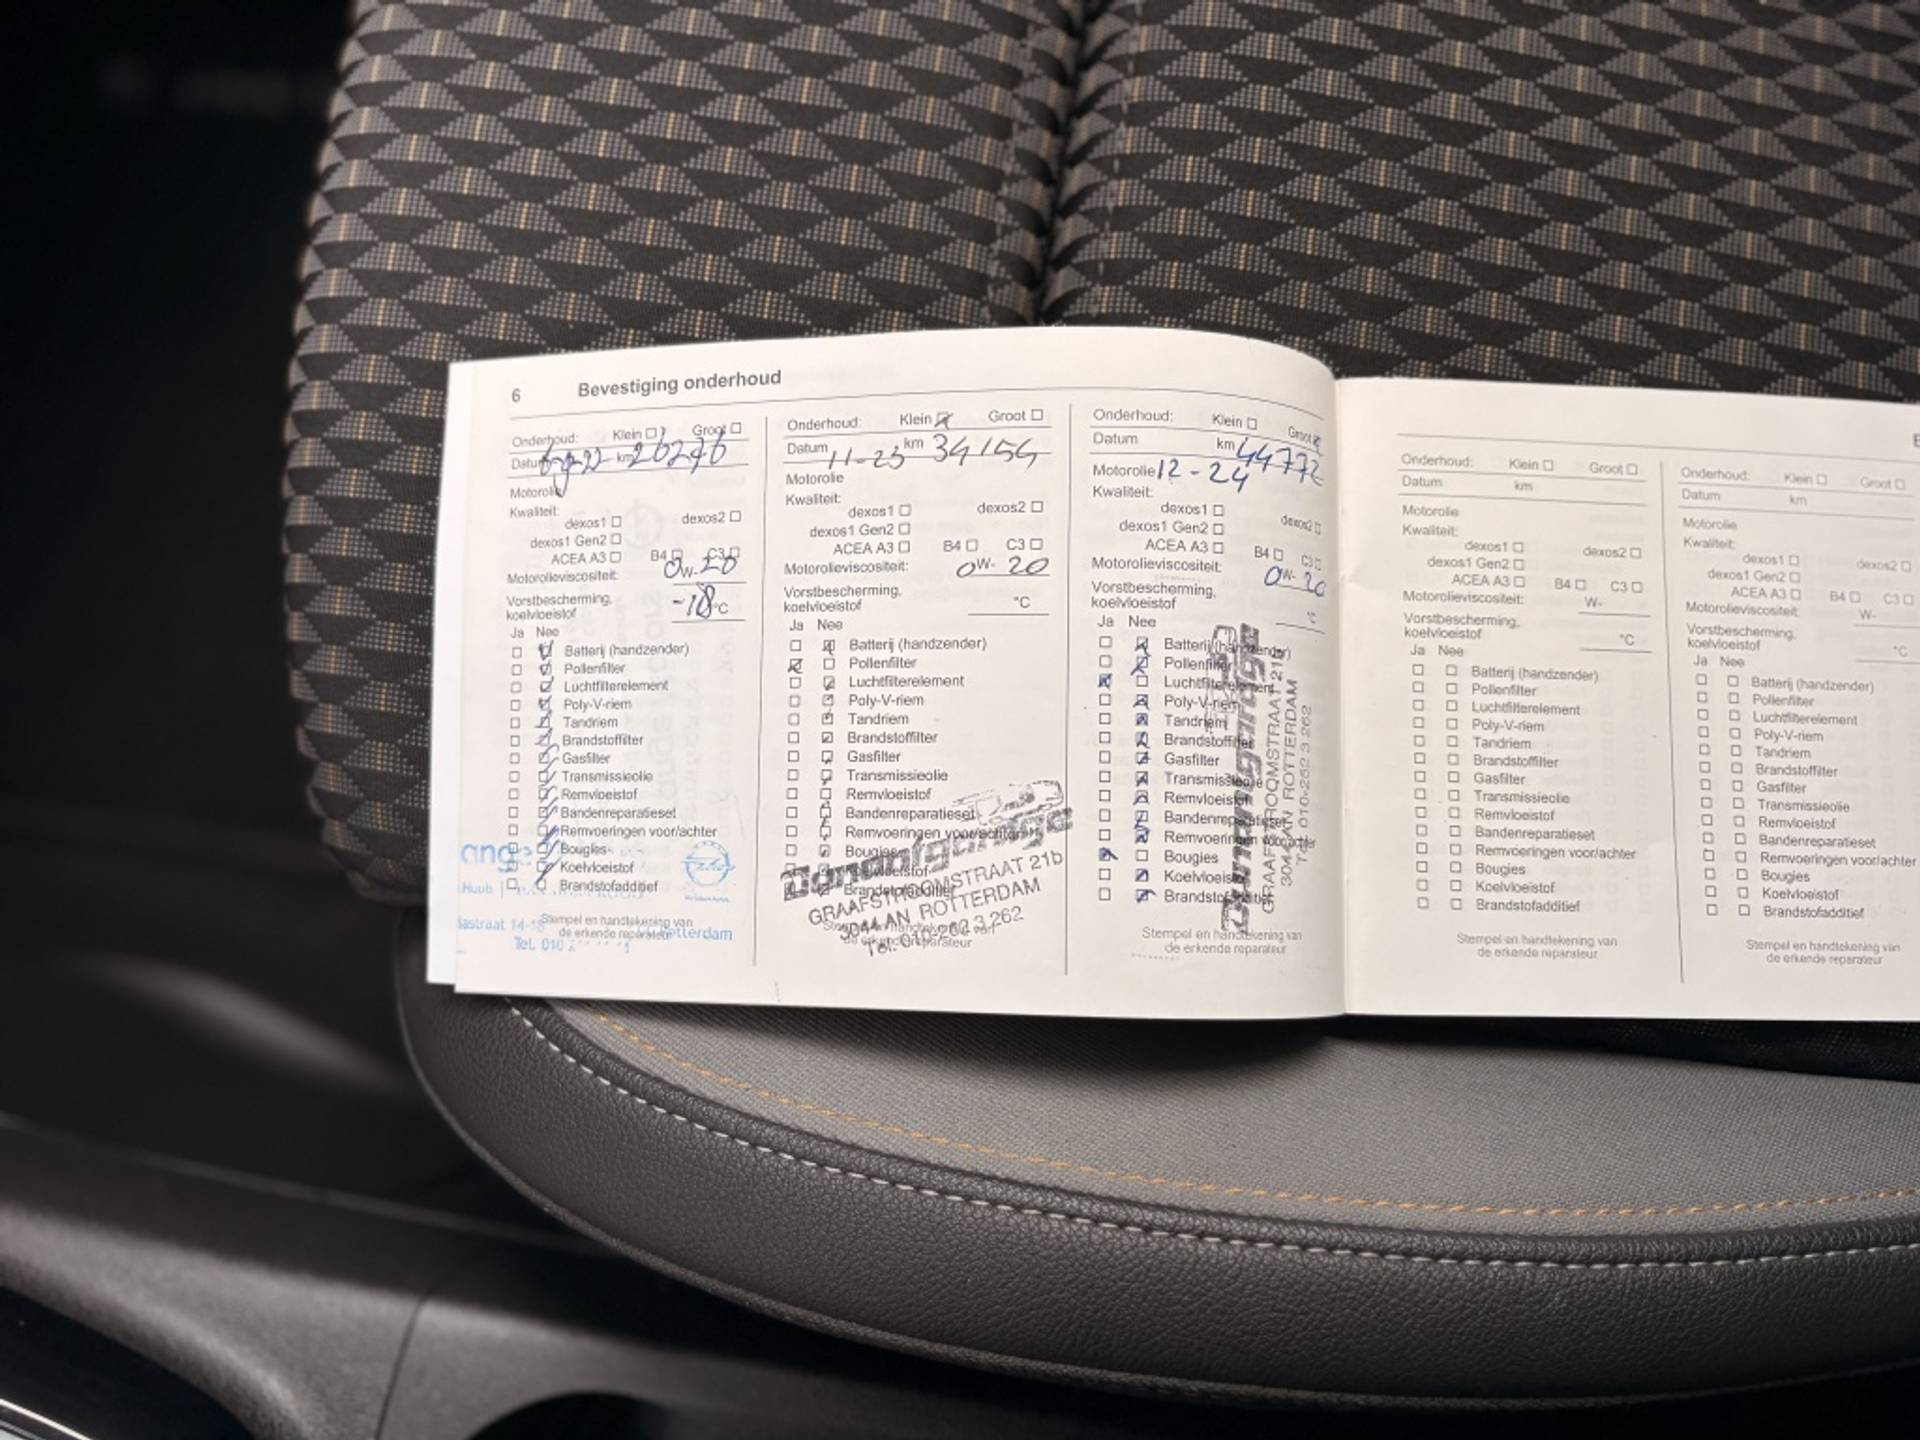 6 Bevestiging onderhoud
Onderhoud: Klein Groot
Datum km 26276
Motorolie
Kwaliteit:
dexos1 dexos2
dexos1 Gen2
ACEA A3 B4 C3
Motorolieviscositeit: 0W-20
Vorstbescherming,
koelvloeistof -18°C
Ja Nee
Batterij (handzender)
Pollenfilter
Luchtfilterelement
Poly-V-riem
Tandriem
Brandstoffilter
Gasfilter
Transmissieolie
Remvloeistof
Bandenreparatieset
Remvoeringen voor/achter
Bougies
Koelvloeistof
Brandstofadditief
Stempel en handtekening van
de erkende reparateur
ange
Huub
lastraat 14-18 Rotterdam
Tel. 010
Onderhoud: Klein Groot
Datum 11-23 km 34154
Motorolie
Kwaliteit:
dexos1 dexos2
dexos1 Gen2
ACEA A3 B4 C3
Motorolieviscositeit: 0W-20
Vorstbescherming,
koelvloeistof °C
Ja Nee
Batterij (handzender)
Pollenfilter
Luchtfilterelement
Poly-V-riem
Tandriem
Brandstoffilter
Gasfilter
Transmissieolie
Remvloeistof
Bandenreparatieset
Remvoeringen voor/achter
Bougies
Koelvloeistof
Brandstofadditief
Stempel en handtekening van
de erkende reparateur
GRAAFSTROOMSTRAAT 21b
3044 AN ROTTERDAM
Tel. 010-262 3 262
Onderhoud: Klein Groot
Datum km 44772
Motorolie 12-24
Kwaliteit:
dexos1 dexos2
dexos1 Gen2
ACEA A3 B4 C3
Motorolieviscositeit: 0W-20
Vorstbescherming,
koelvloeistof °C
Ja Nee
Batterij (handzender)
Pollenfilter
Luchtfilterelement
Poly-V-riem
Tandriem
Brandstoffilter
Gasfilter
Transmissieolie
Remvloeistof
Bandenreparatieset
Remvoeringen voor/achter
Bougies
Koelvloeistof
Brandstofadditief
Stempel en handtekening van
de erkende reparateur
GRAAFSTROOMSTRAAT 21b
3044 AN ROTTERDAM
Tel. 010-262 3 262
Onderhoud: Klein Groot
Datum km
Motorolie
Kwaliteit:
dexos1 dexos2
dexos1 Gen2
ACEA A3 B4 C3
Motorolieviscositeit: W-
Vorstbescherming,
koelvloeistof °C
Ja Nee
Batterij (handzender)
Pollenfilter
Luchtfilterelement
Poly-V-riem
Tandriem
Brandstoffilter
Gasfilter
Transmissieolie
Remvloeistof
Bandenreparatieset
Remvoeringen voor/achter
Bougies
Koelvloeistof
Brandstofadditief
Stempel en handtekening van
de erkende reparateur
Onderhoud: Klein Groot
Datum km
Motorolie
Kwaliteit:
dexos1 dexos2
dexos1 Gen2
ACEA A3 B4 C3
Motorolieviscositeit: W-
Vorstbescherming,
koelvloeistof °C
Ja Nee
Batterij (handzender)
Pollenfilter
Luchtfilterelement
Poly-V-riem
Tandriem
Brandstoffilter
Gasfilter
Transmissieolie
Remvloeistof
Bandenreparatieset
Remvoeringen voor/achter
Bougies
Koelvloeistof
Brandstofadditief
Stempel en handtekening van
de erkende reparateur